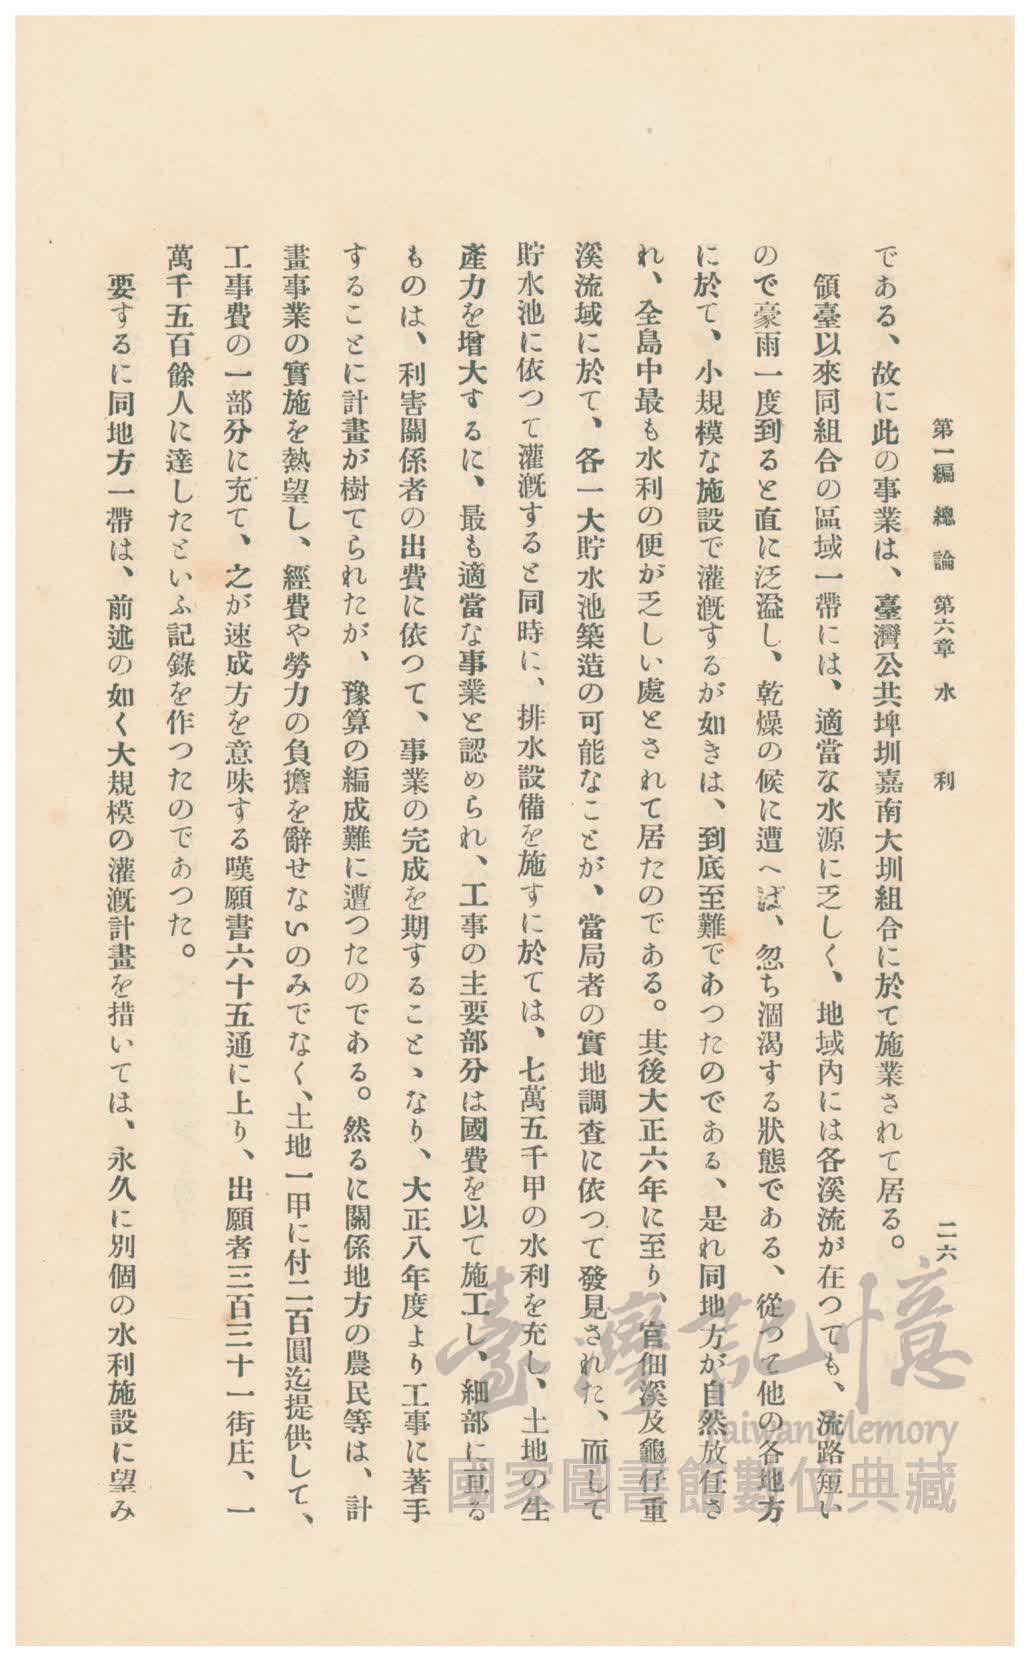 第一編 總論 第六章 水利
二六
である、故に此の事業は、臺灣公共埤圳嘉南大圳組合に於て施業されて居る。
領臺以來同組合の區域一帶には、適當な水源に乏しく、地域內には各溪流が在つても、流路短い
ので豪雨一度到ると直に泛溢し、乾燥の候に遭へば、忽ち涸渴する狀態である、從つて他の各地方
に於て、小規模な施設で灌漑するが如きは、到底至難であつたのである、是れ同地方が自然放任さ
れ、全島中最も水利の便が乏しい處とされて居たのである。其後大正六年に至り、官佃溪及龜仔重
溪流域に於て、各一大貯水池築造の可能なことが、當局者の實地調查に依つて發見された、而して
貯水池に依つて灌漑すると同時に、排水設備を施すに於ては、七萬五千甲の水利を充し、土地の生
產力を增大するに、最も適當な事業と認められ、工事の主要部分は國費を以て施工し、細部に亘る
ものは、利害關係者の出費に依つて、事業の完成を期することゝなり、大正八年度より工事に著手
することに計畫が樹てられたが、豫算の編成難に遭つたのである。然るに關係地方の農民等は、計
畫事業の實施を熱望し、經費や勞力の負擔を辭せないのみでなく、土地一甲に付二百圓迄提供して、
工事費の一部分に充て、之が速成方を意味する嘆願書六十五通に上り、出願者三百三十一街庄、一
萬千五百餘人に達したといふ記錄を作つたのであつた。
要するに同地方一帶は、前述の如く大規模の灌漑計畫を措いては、永久に別個の水利施設に望み
臺灣記憶
Taiwan Memory
國家圖書館數位典藏